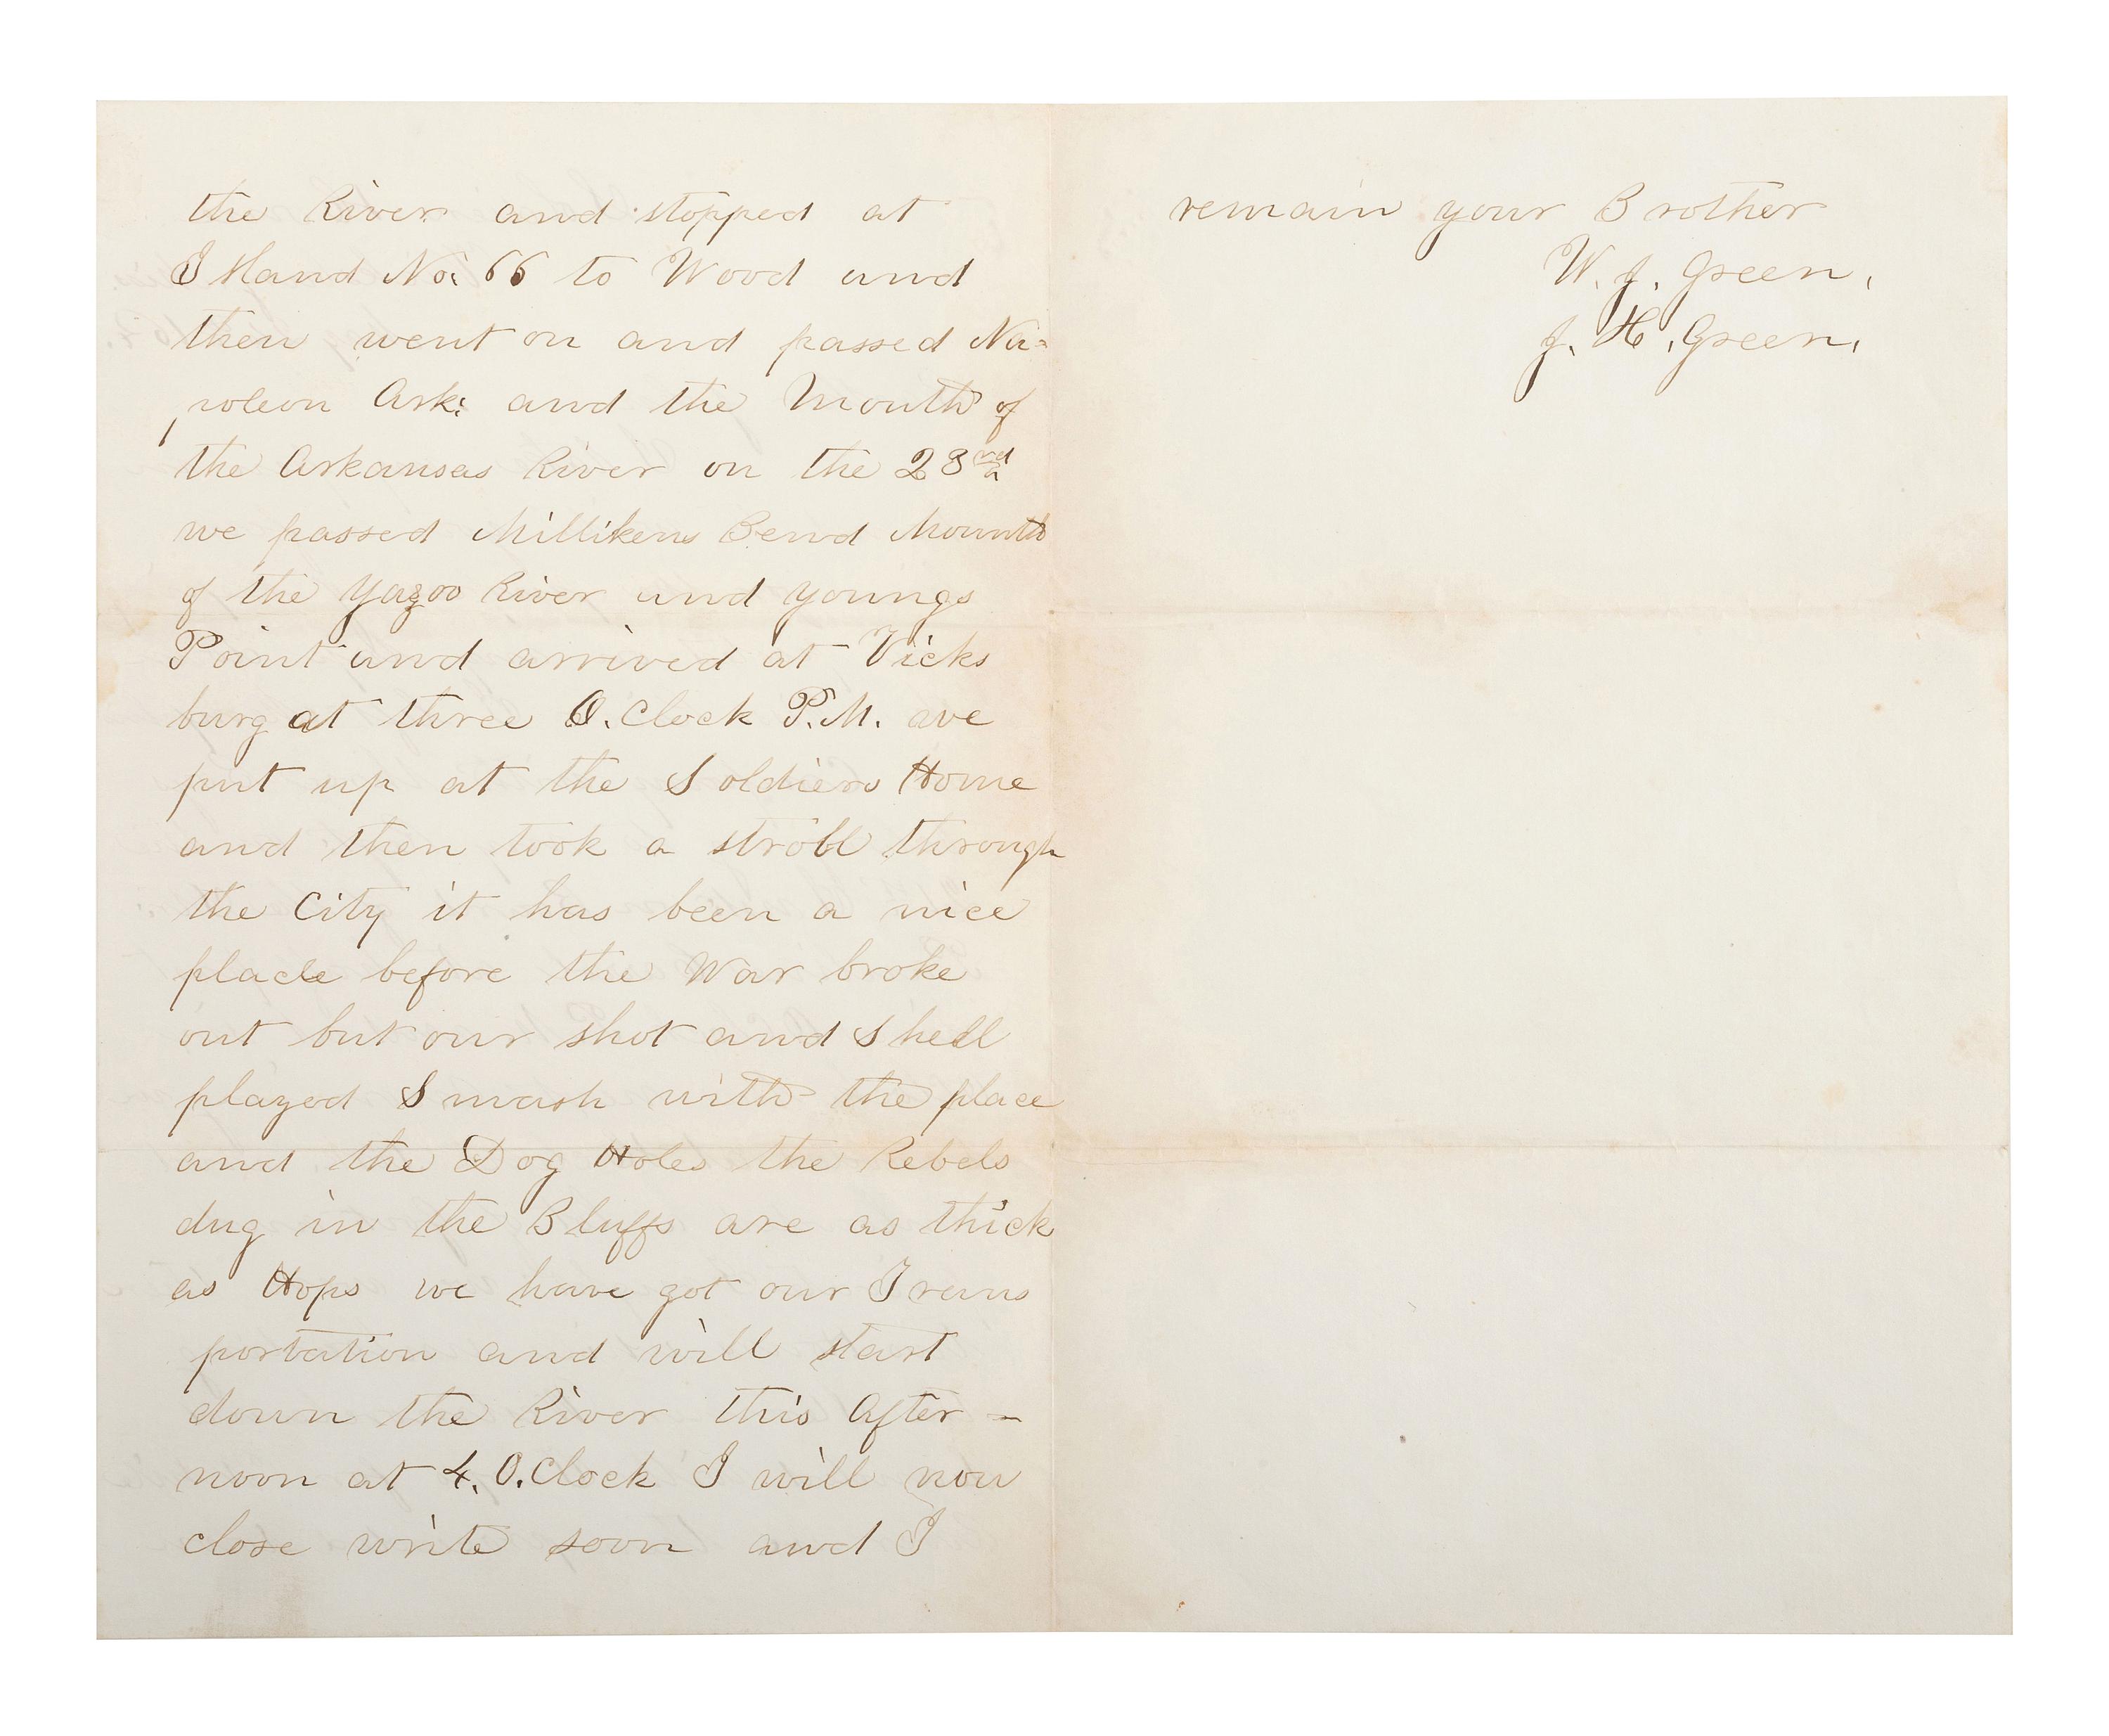 the River and stopped at
Island No: 66 to Wood and
then went on and passed Na=
poleon Ark: and the Mouth of
the Arkansas River on the 23rd
we passed Millikens Bend Mounth
of the Yazoo River and Youngs
Point and arrived at Vicks
burg at three O. Clock P.M. we
put up at the Soldiers Home
and then took a stroll through
the City it has been a nice
place before the War broke
out but our shot and Shell
played Smash with the place
and the Dog Holes the Rebels
dug in the Bluffs are as thick
as Hops we have got our Trans
portation and will start
down the River this After -
noon at 4. O. Clock I will now
close write soon and I
remain your Brother
W. J. Green.
J. H. Green.